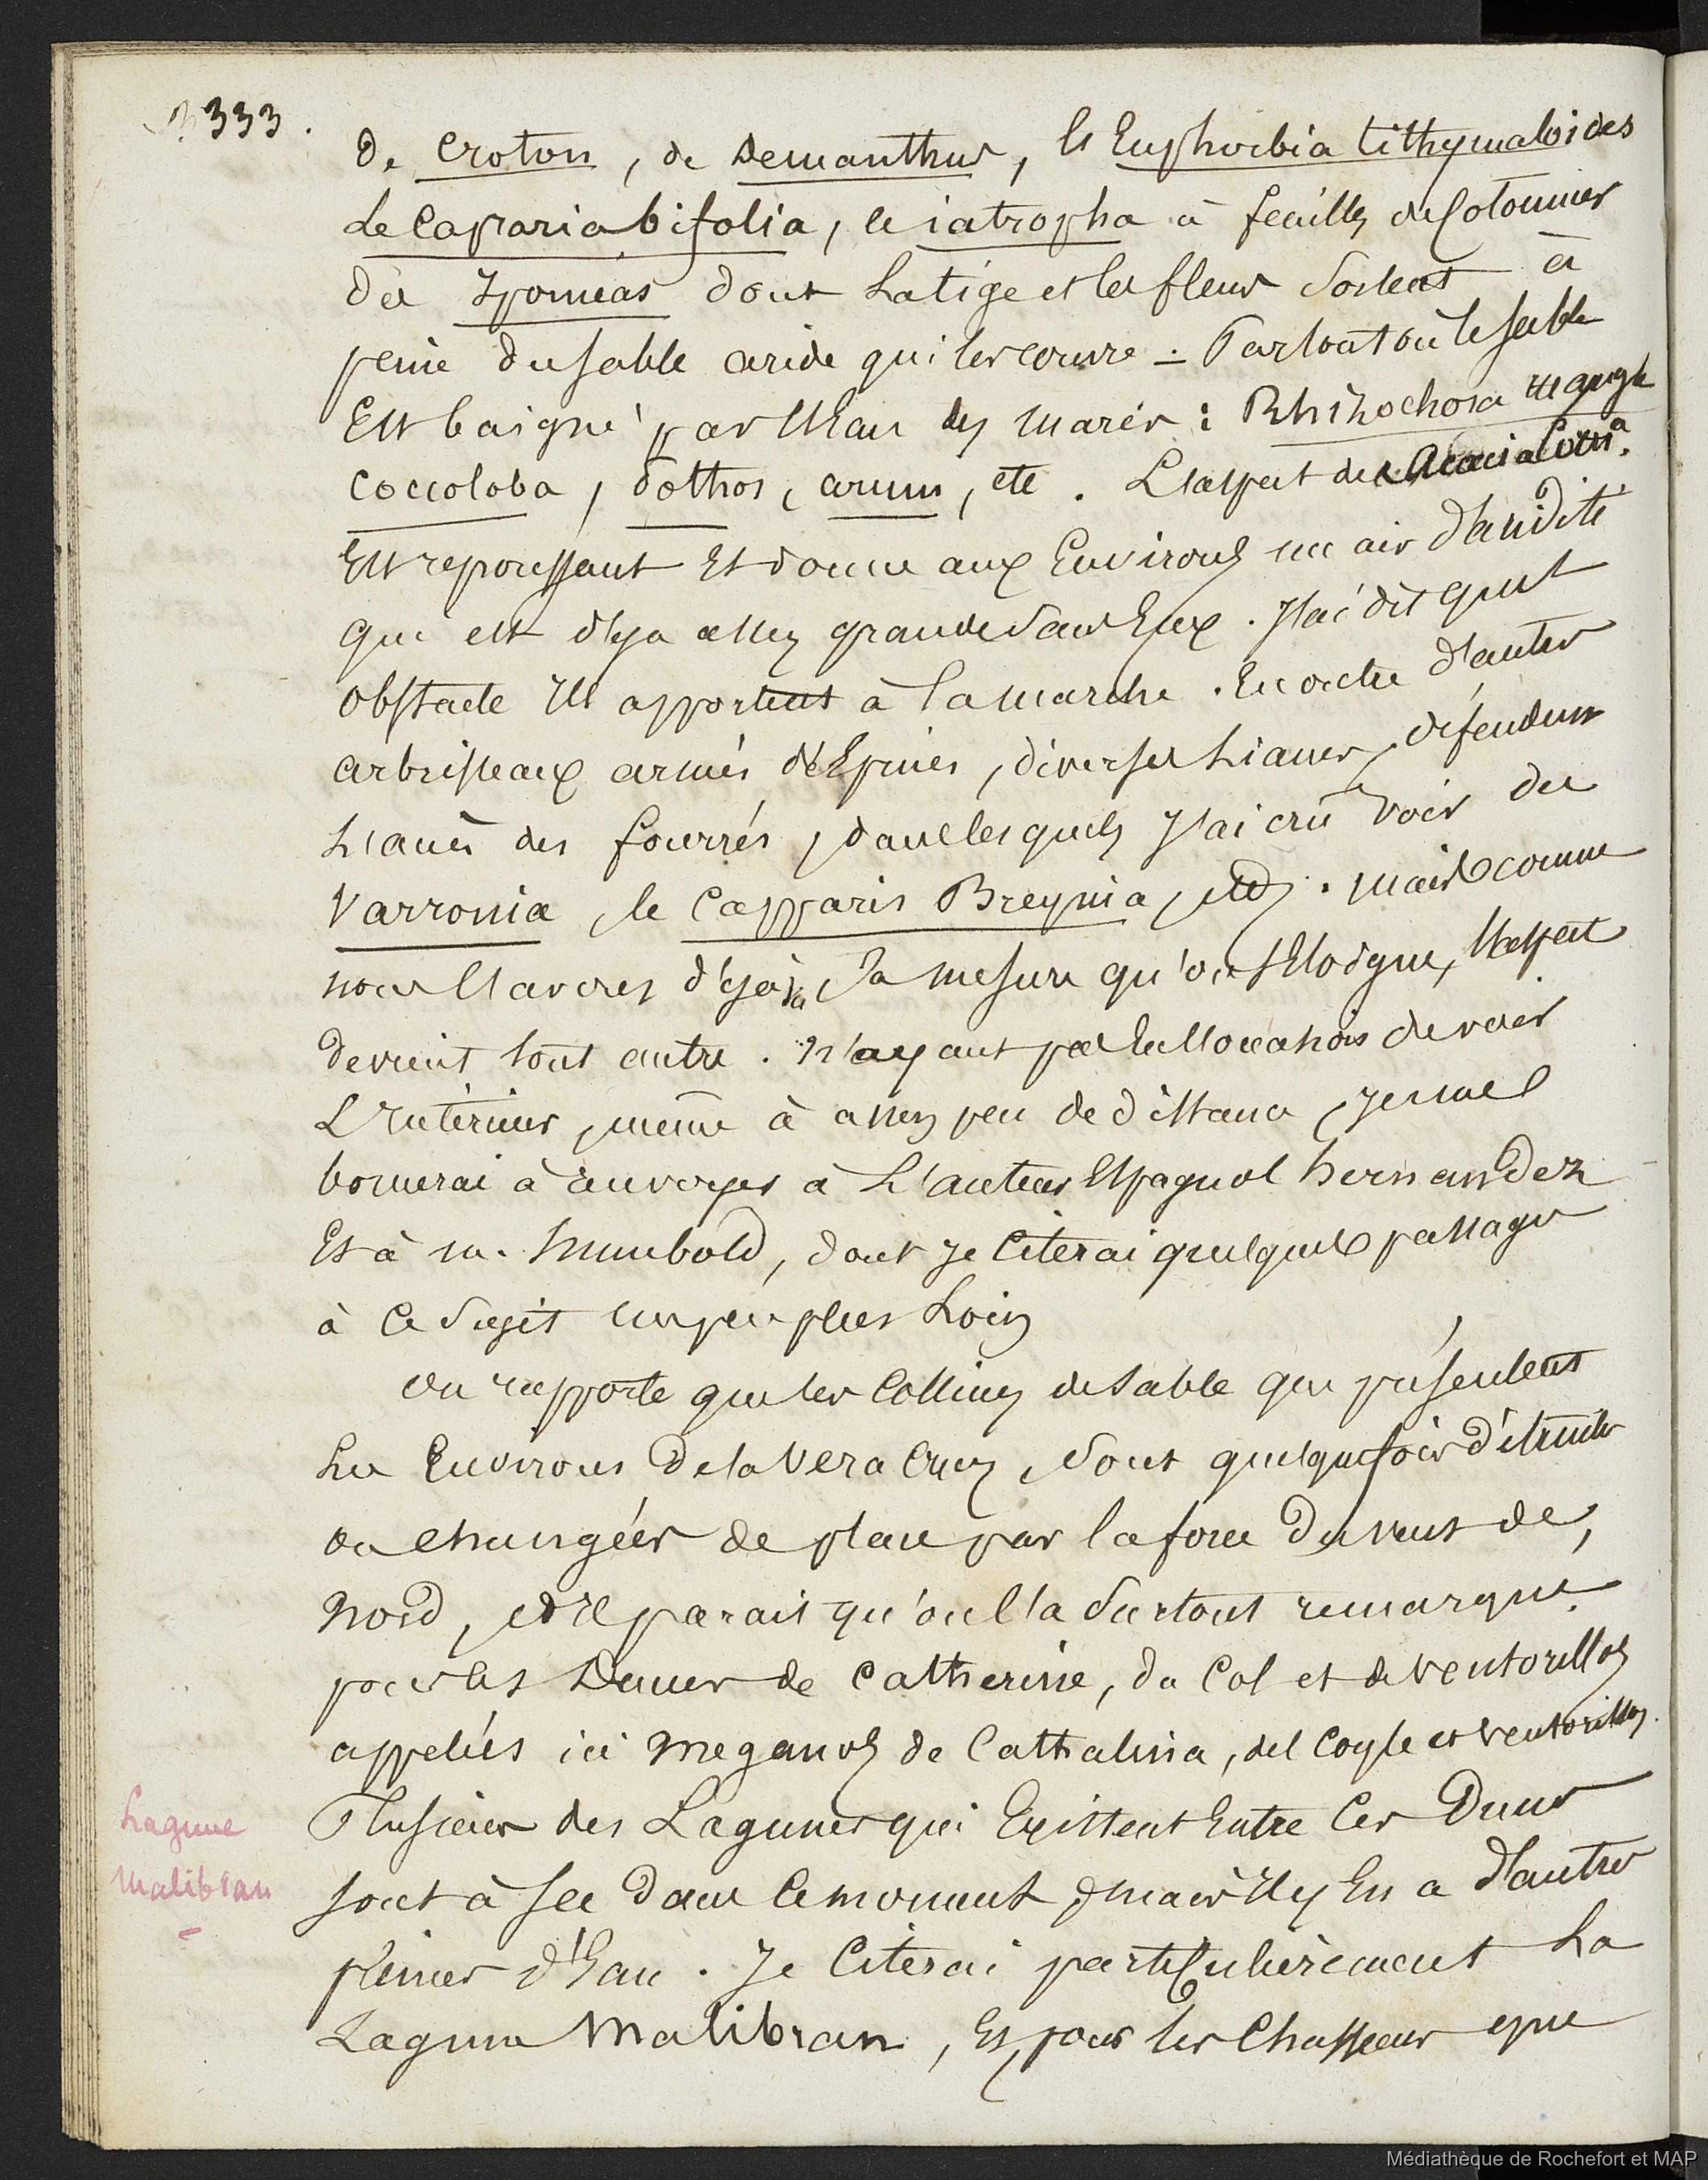 333.
de Croton, de Demanthus, l'Euphorbia tithymaloides
Le Caparia bifolia, le iatropha à feuilles de Cotonnier
des Ypomeas dont la tige et les fleurs sortent à
peine du sable aride qui les couvre = Partout où le sable
Est baigné par l'Eau des marées : Rhizochora mangle
Coccoloba, dothos, arum, etc. L'aspect des Acacia Corna
Est repoussant Et donne aux Environs un air d'aridité
qui est déja assez grande sans Eux. J'ai dit quel
obstacle Ils apportent à la marche. En outre d'autres
arbrisseaux armés d'Epines, diverses Lianes, défendent
L'accès des fourrés, dans lesquels J'ai crû voir des
Varronia, le Capparis Breynia, etc. mais comme
nous l'avons déja à mesure qu'on s'Eloigne, l'aspect
devient tout autre. N'ayant pas eu l'occasion de voir
L'Intérieur, même à assez peu de distance, Je me
bornerai à renvoyer à L'auteur Espagnol hernandez
Et à m. humbold, dont Je Citerai quelques passages
à Ce sujet un peu plus Loin
On rapporte que les Collines de sable que présentent
Les Environs de la Vera Cruz, sont quelquefois détruites
ou changées de place par la force du vent de,
nord, et Il parait qu'on l'a surtout remarqué
pour les Dunes de Catherine, du Col et de Ventorillos
appelés ici meganos de Cathalina, del Coyle et ventorillos.
Plusieurs des Lagunes qui Existent Entre Ces Dunes
sont à sec dans Ce moment, mais Il y En a d'autres
pleines d'Eau. Je Citerai particulièrement La
Laguna Malibran, Et pour les Chasseurs que
Lagune
Malibran
Médiathèque de Rochefort et MAP